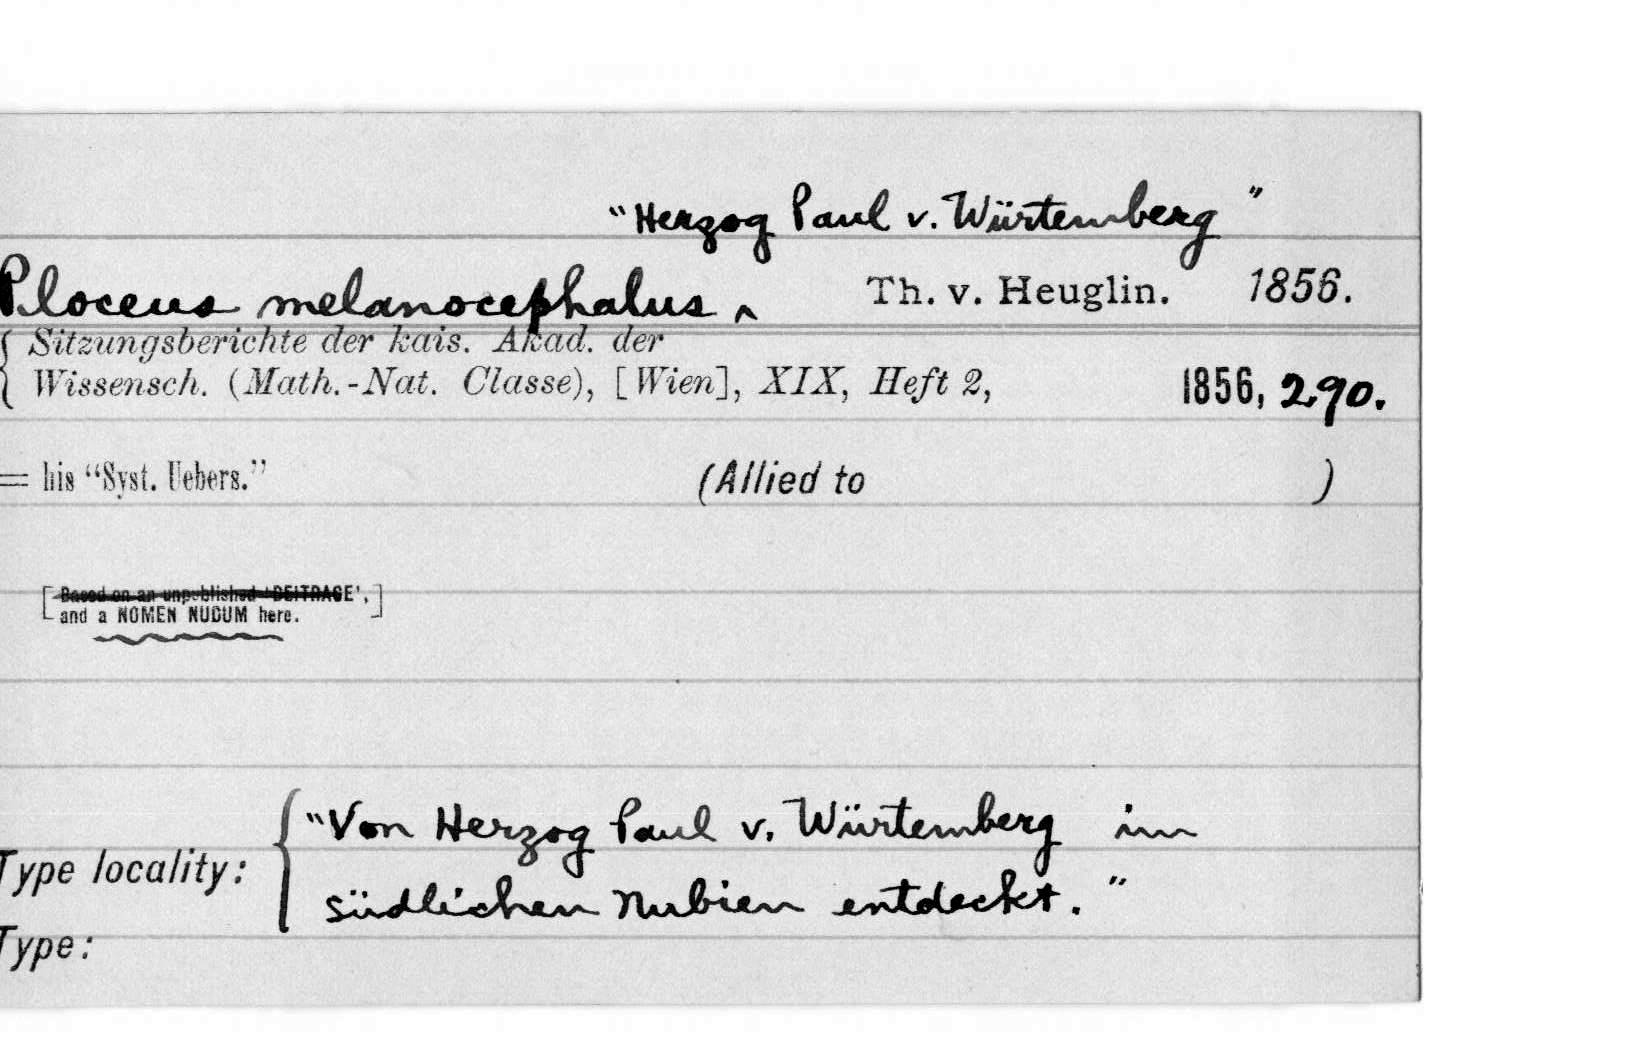 "Herzog Paul v. Würtemberg"
Ploceus melanocephalus ‸ Th. v. Heuglin. 1856.
Sitzungsberichte der kais. Akad. der
Wissensch. (Math.-Nat. Classe), [Wien], XIX, Heft 2, 1856, 290.
= his "Syst. Uebers." (Allied to )
[Based on an unpublished 'BEITRAGE',
and a NOMEN NUDUM here.]
Type locality: "Von Herzog Paul v. Würtemberg im
südlichen Nubien entdeckt."
Type: